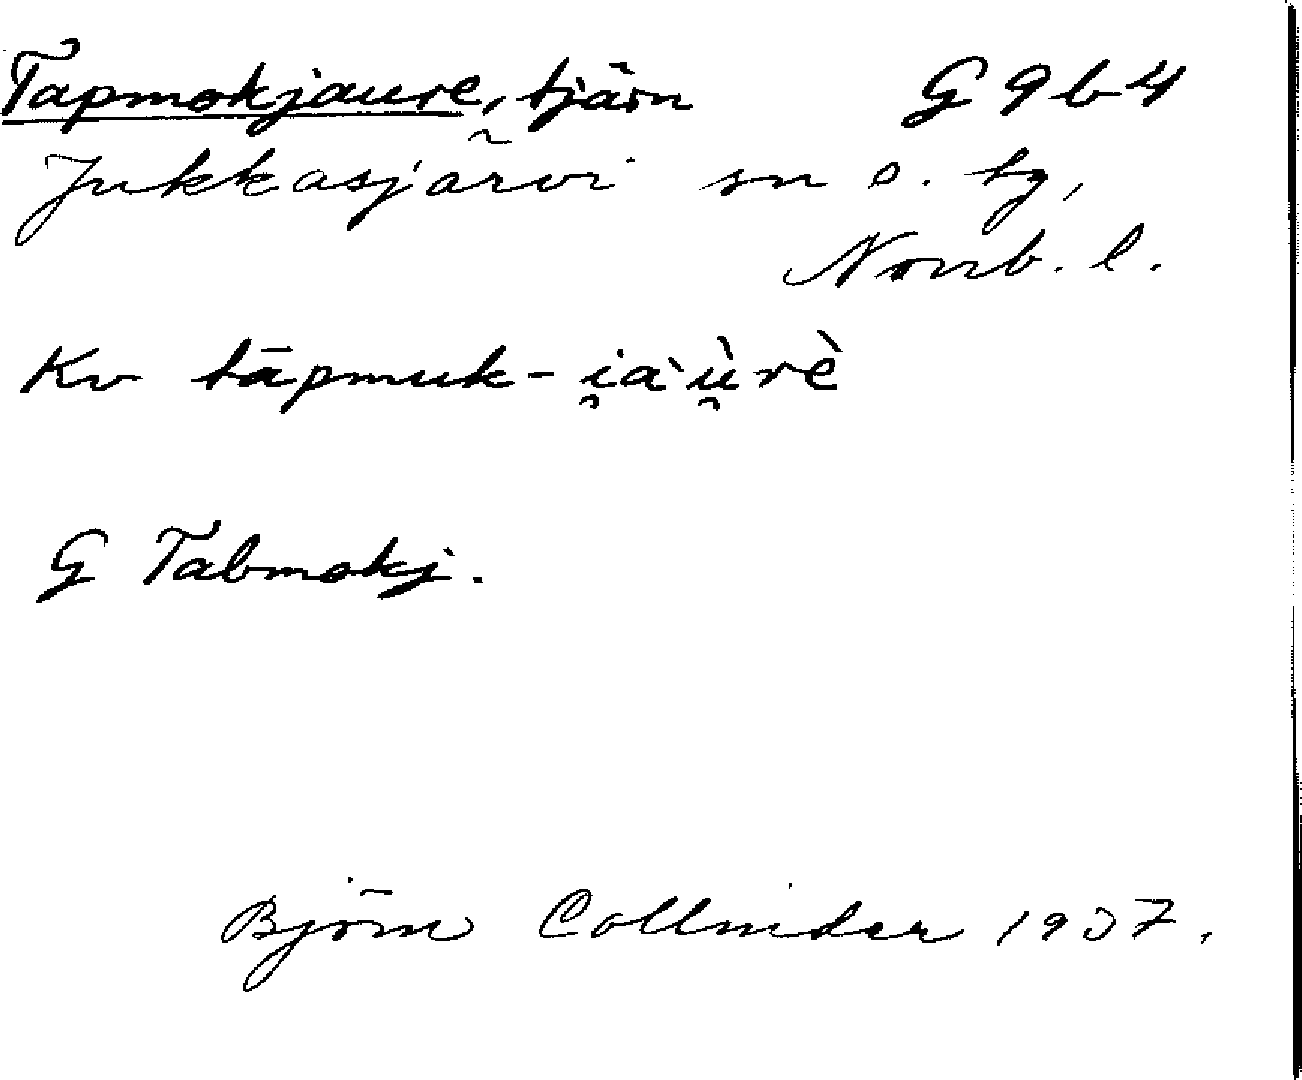 Tapmokjaure, tjärn G 9 b 4
Jukkasjärvi sn o. tg,
Norrb. l.
Kv tāpmuk-i̯a`ù̯rè
G Tabmokj.
Björn Collinder 1937.